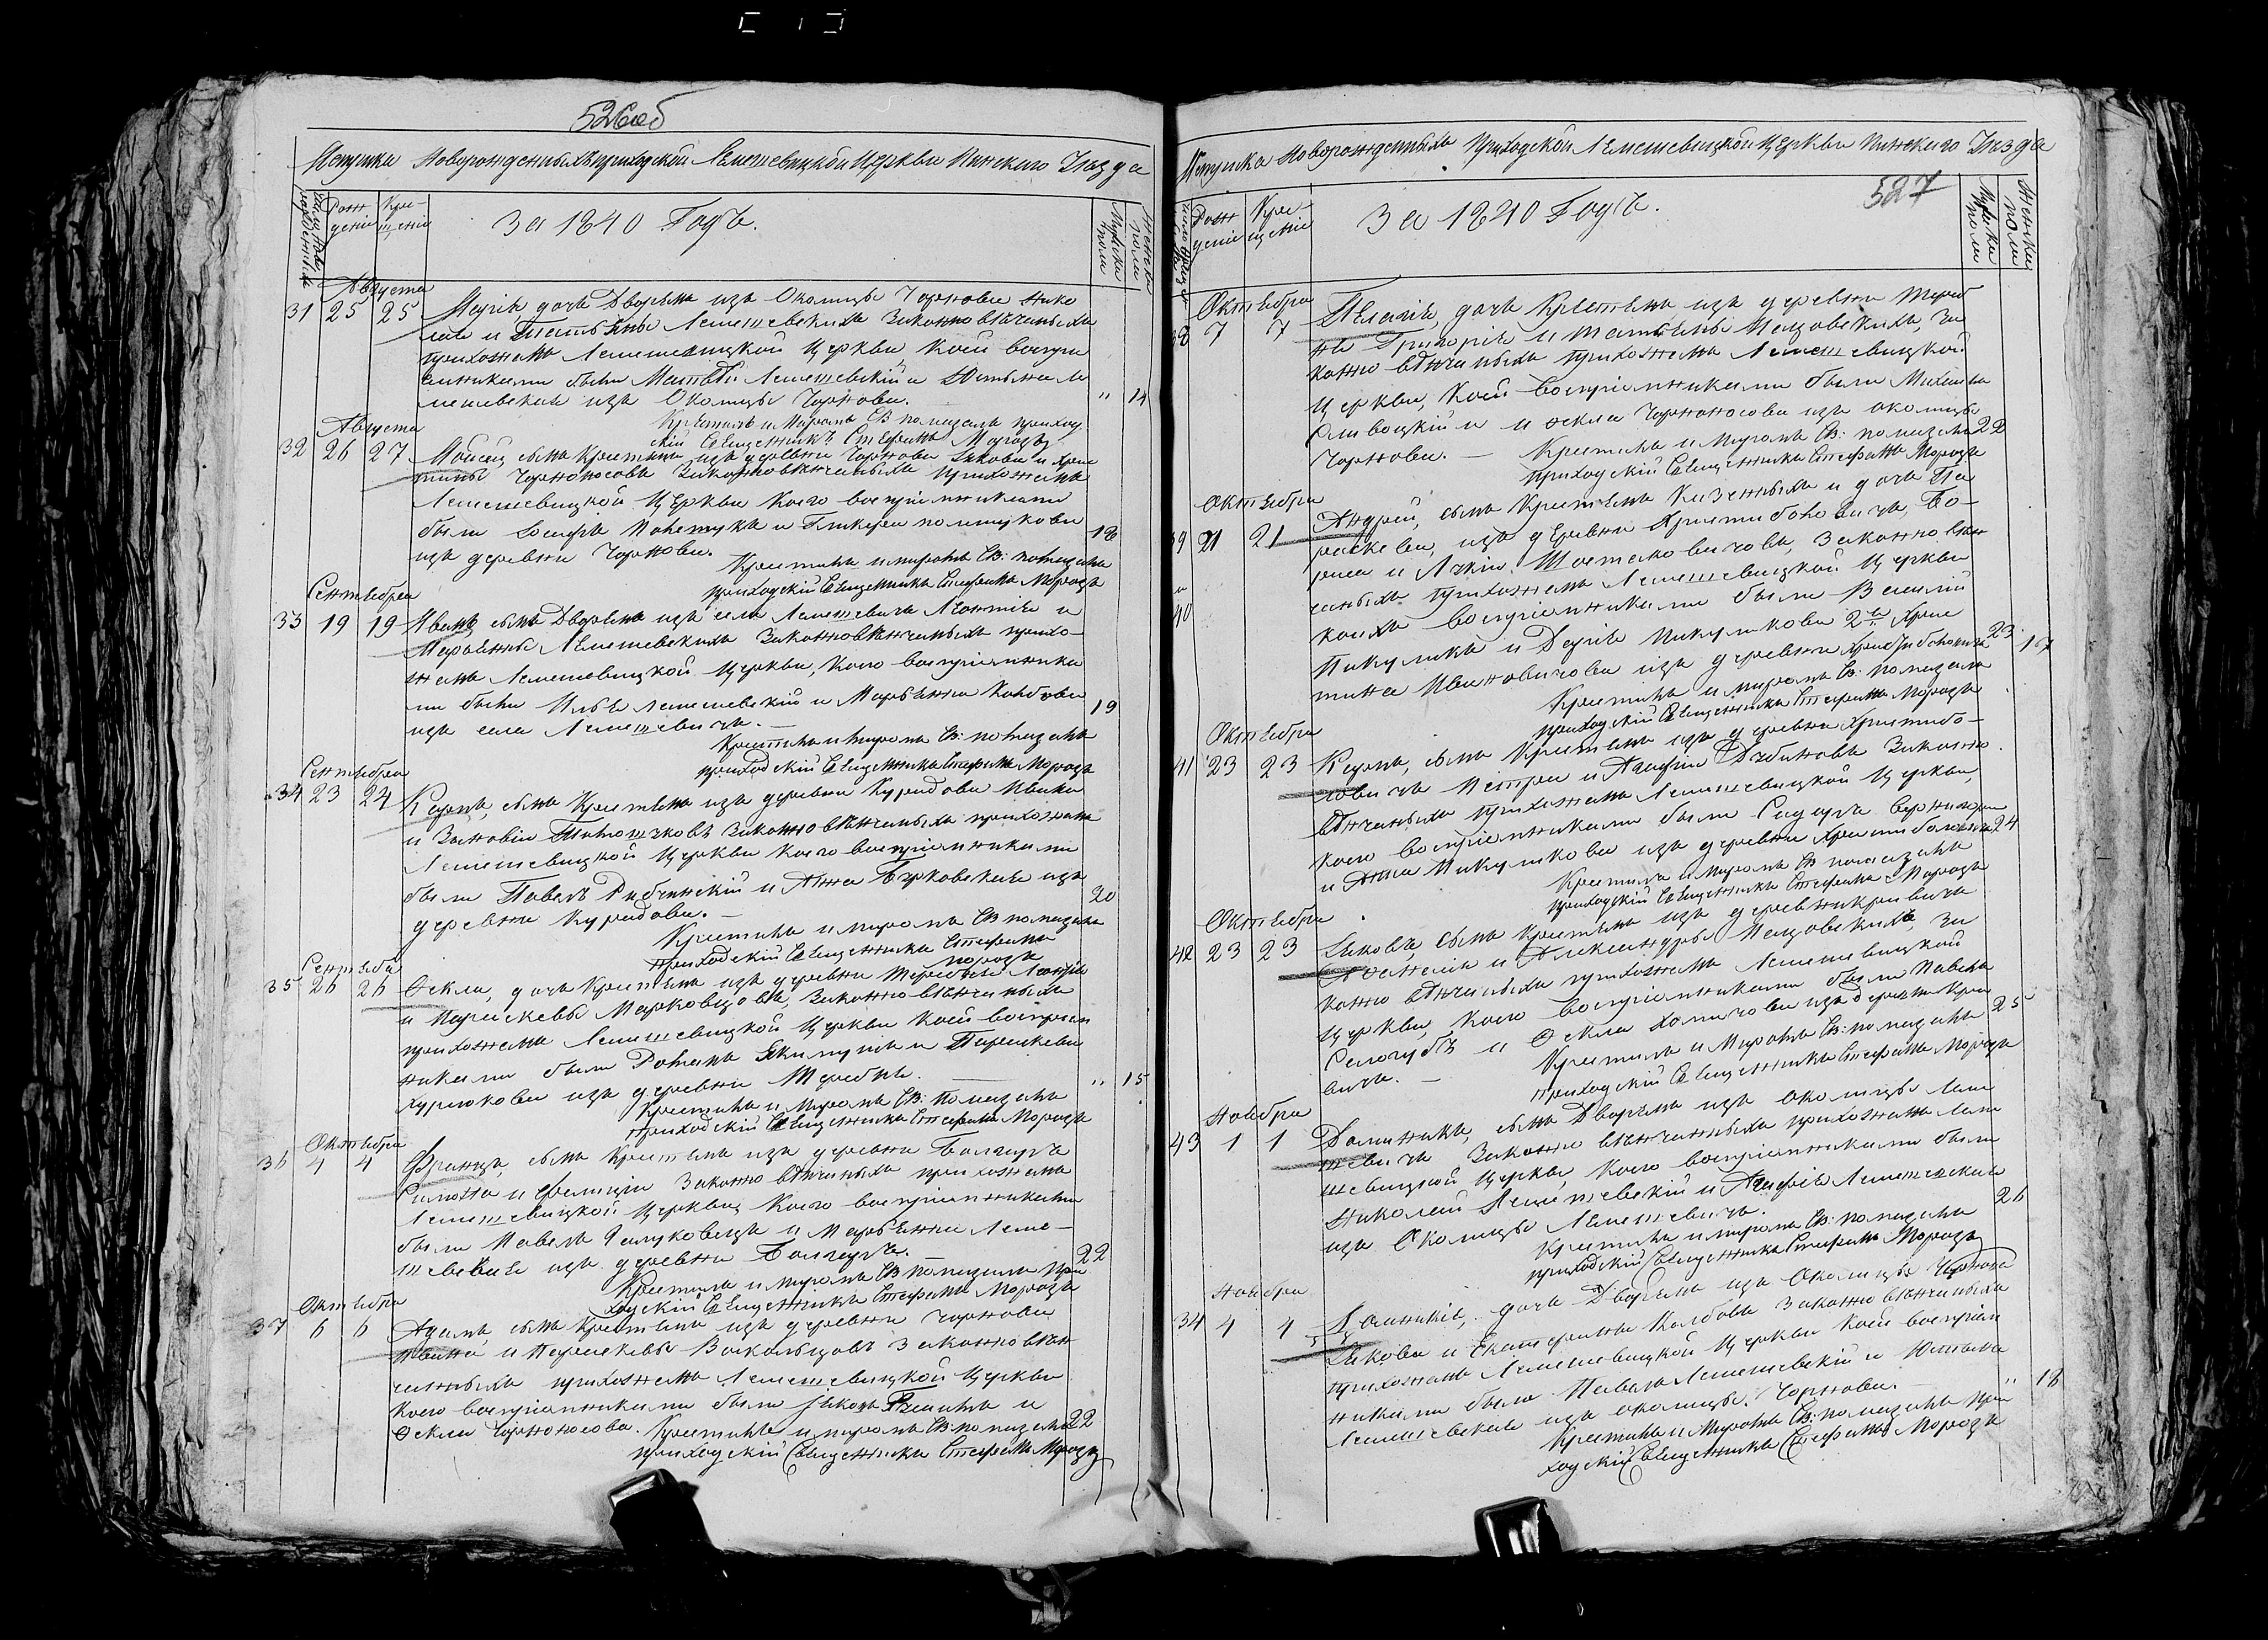 526 об
Метрика Новорожденныхъ приходской Лемешевицкой Церкви Пинского Уезда
Рож дение
Кре- щение
За 1840 Годъ.
Мужска пола
Женска пола
Августа
31 25 25 Марія, дочь Дворянъ изъ Околицы Чорнова Нико
лая и Татьяны Лемешевскихъ Законновенчаныхъ
прихожанъ Лемешевицкой Церкви Коей воспри
емниками были Матвей Лемешевскій и Юльяна Ле
мешевская изъ Околицы Чорнова. " 14
Крестилъ и Миромъ Св помазалъ приход
Августа
скій Священникъ Стефанъ Морозъ
32 26 27 Мойсей, сынъ Крестьянъ изъ деревни Чорнова Якова и Хрис
тины Чорноносовъ Законновенчаныхъ прихожанъ
Лемешевицкой Церкви Коего восприемниками
были и Гликерия
изъ деревни Чорнова. 18
Крестилъ и миромъ Св: помазалъ
приходскій Священникъ Стефанъ Морозъ
Сентября
33 19 19 Иванъ сынъ Дворянъ изъ села Лемешевичъ Леонтія и
Марьяны Лемешевскихъ Законновенчаныхъ прихо-
жанъ Лемешевицкой Церкви, Коего восприемника
ми были Илья Лемешевскій и Марьянна Колбова
изъ села Лемешевичъ. — 19
Крестилъ и миромъ Св: помазалъ
приходскій Священникъ Стефанъ Морозъ
Сентября
34 23 24 Карпъ, сынъ Крестьянъ изъ деревни Курадова Ивана
и Зиновіи Законновенчаныхъ прихожанъ
Лемешевицкой Церкви Коего восприемниками
были Павелъ и Анна Бурковская изъ
деревни Курадова. — 20
Крестилъ и миромъ Св помазалъ
приходскій Священникъ Стефанъ
Морозъ
Сентяб
35 26 26 Фекла, дочь Крестьянъ изъ деревни Теребня
и Параскевы Марковцовъ, Законновенчаныхъ
прихожанъ Лемешевицкой Церкви Коей восприем
никами были Романъ и Параскева
изъ деревни Теребня. " 15
Крестилъ и миромъ Св: помазалъ
приходскій Священникъ Стефанъ Морозъ
Октября
36 4 4 Францъ, сынъ Крестьянъ изъ деревни
и Фелиціи Законновенчаныхъ прихожанъ
Лемешевицкой Церкви, Коего восприемниками
были Павелъ и Марьянна Леме-
шевская изъ деревни 22
Крестилъ и миромъ Св помазалъ при
ходскій Священникъ Стефанъ Морозъ
Октября
37 6 6 Адамъ, сынъ Крестьянъ изъ деревни Чорнова
Ивана и Параскевы Законновен
чанныхъ прихожанъ Лемешевицкой Церкви
Коего восприемниками были Яковъ и
Фекла Чорноносова. Крестилъ и миромъ Св: помазалъ 22
приходскій Священникъ Стефанъ Морозъ
Метрика Новорожденныхъ Приходской Лемешевицкой Церкви Пинского Уезда
527
Рож дение
Кре- щение
За 1840 Годъ.
Мужска пола
Женска пола
Октября
38 7 7 Пелагія, дочь Крестьянъ изъ деревни Тереб
ня Григорія и Татьяны за
конно венчаныхъ прихожанъ Лемешевицкой
Церкви, Коей восприемниками были Михаилъ
и Фекла Чорноносова изъ околицы
Чорнова. — Крестилъ и миромъ Св: помазалъ 22
приходскій Священникъ Стефанъ Морозъ
Октября
39 21 21 Андрей, сынъ Крестьянъ Казенныхъ и дочь Па
раскева, изъ деревни Христиболовичъ, Бо-
риса и Законновен
чаныхъ прихожанъ Лемешевицкой Церкви
40 коихъ восприемниками были Василій
Пикуликъ и Дарія Пикуликова 2й Хрис
тина Ивановичова изъ деревни Христиболовичъ 23 17
Крестилъ и миромъ Св: помазалъ
приходскій Священникъ Стефанъ Морозъ
Октября
41 23 23 Карпъ, сынъ Крестьянъ изъ деревни Христибо-
ловичъ Петра и Агафіи Законно
венчаныхъ прихожанъ Лемешевицкой Церкви,
коего восприемниками были
и Анна Пикуликова изъ деревни Христиболовичъ 24
Крестилъ и миромъ Св помазалъ
приходскій Священникъ Стефанъ Морозъ
Октября
42 23 23 Яковъ, сынъ Крестьянъ изъ деревни Кривичъ
и Александры за
конно венчаныхъ прихожанъ Лемешевицкой
Церкви, Коего восприемниками были Павелъ
и Фекла изъ деревни Кри
вичъ. — Крестилъ и Миромъ Св: помазалъ 25
приходскій Священникъ Стефанъ Морозъ
Ноября
43 1 1 Доминикъ, сынъ Дворянъ изъ околицы Леме
шевичъ Законно венчанныхъ прихожанъ Леме
шевицкой Церкви, Коего восприемниками были
Николай Лемешевскій и Агафія Лемешевская
изъ Околицы Лемешевичъ. 26
Крестилъ и миромъ Св: помазалъ
приходскій Священникъ Стефанъ Морозъ
Ноября
34 4 4 дочь Дворянъ изъ Околицы Чорнова
Якова и Екатерины Колбовъ Законно венчаныхъ
прихожанъ Лемешевицкой Церкви Коей восприем
никами были Павелъ Лемешевскій и Юльяна
Лемешевская изъ околицы Чорнова. — " 18
Крестилъ и Миромъ Св: помазалъ при
ходскій Священникъ Стефанъ Морозъ